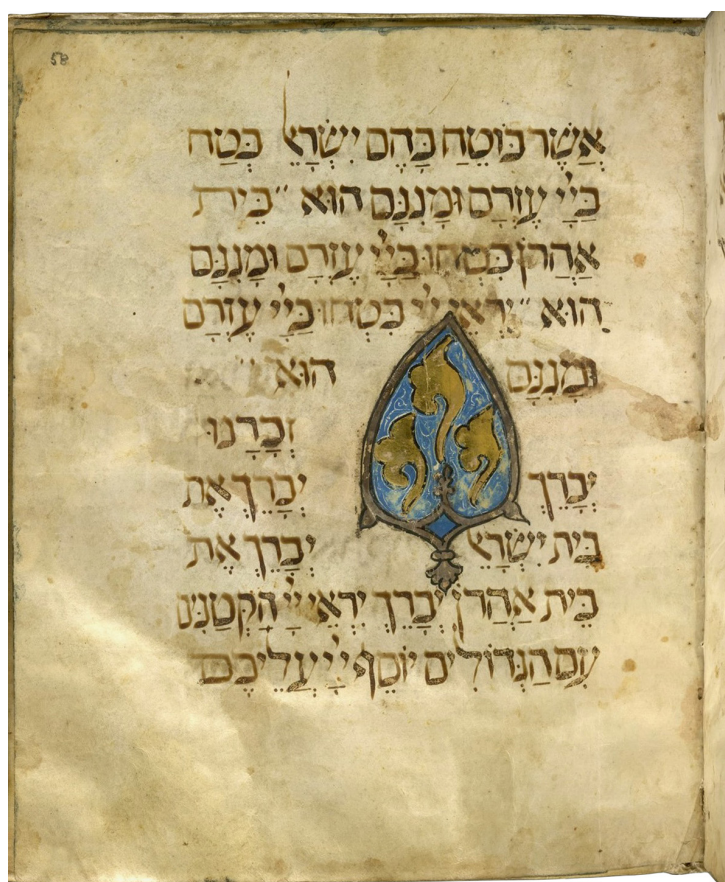 58
אֲשֶׁר בּוֹטֵחַ בָּהֶם יִשְׂרָאֵל בְּטַח
בַּיְיָ עֶזְרָם וּמָגִנָּם הוּא ״ בֵּית
אַהֲרֹן בִּטְחוּ בַּיְיָ עֶזְרָם וּמָגִנָּם
הוּא ״ יִרְאֵי יְיָ בִּטְחוּ בַּיְיָ עֶזְרָם
וּמָגִנָּם הוּא
זְכָרָנוּ
יְבָרֵךְ יְבָרֵךְ אֶת
בֵּית יִשְׂרָאֵל יְבָרֵךְ אֶת
בֵּית אַהֲרֹן יְבָרֵךְ יִרְאֵי יְיָ הַקְּטַנִּים
עִם הַגְּדוֹלִים יוֹסֵף יְיָ עֲלֵיכֶם